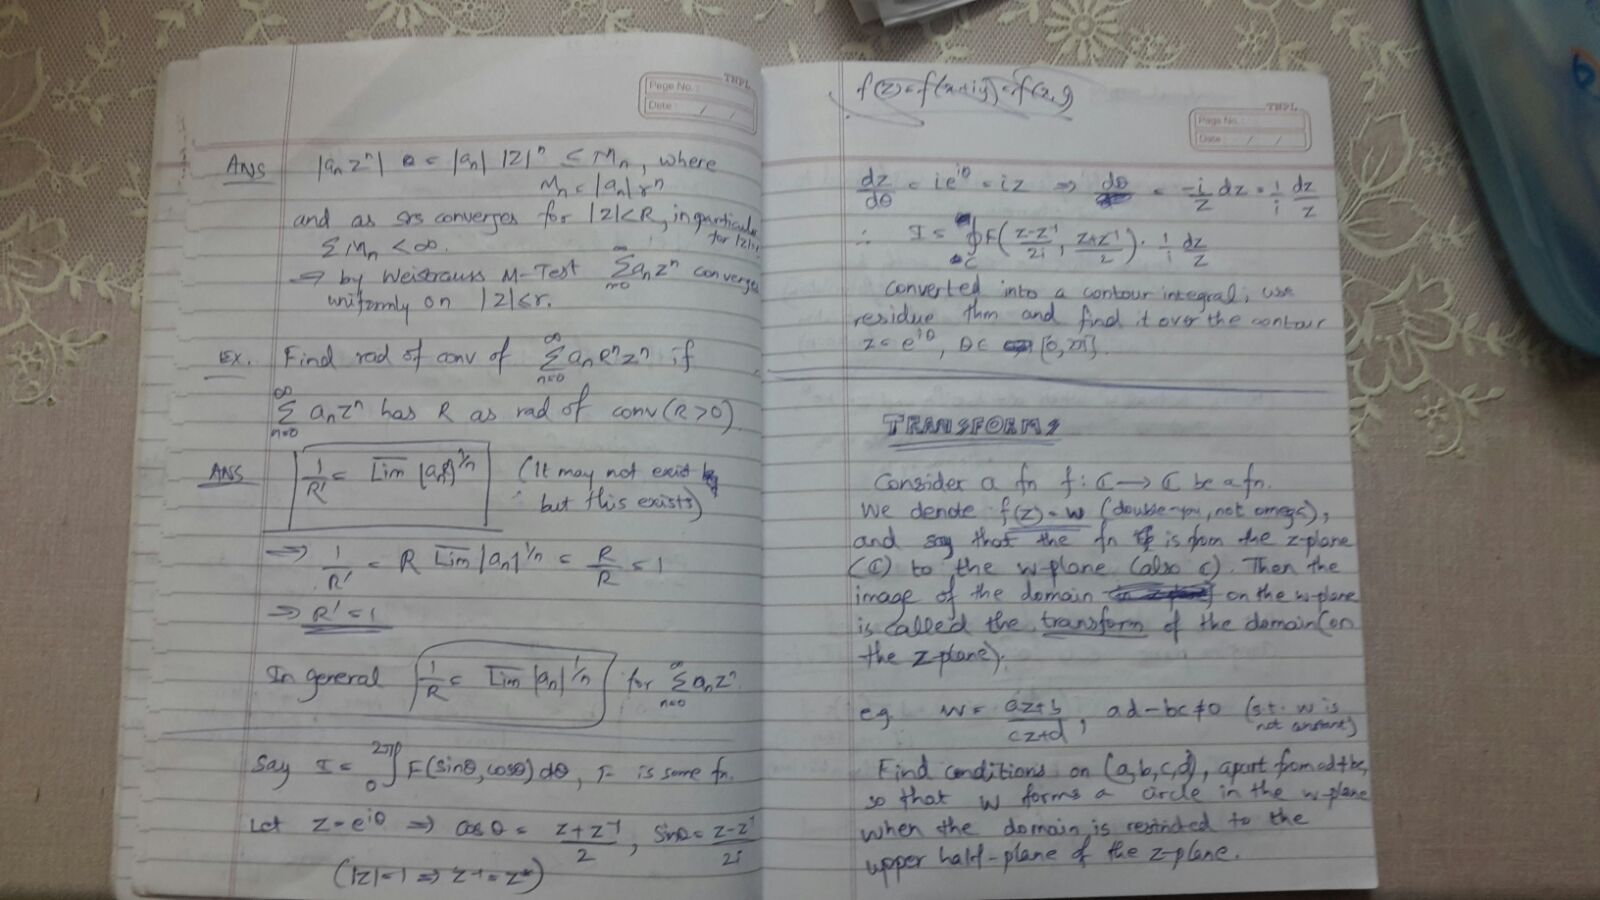 THPL
Page No.:
Date: / /
Ans |aₙzⁿ| = |aₙ| |z|ⁿ ≤ Mₙ, where
Mₙ = |aₙ|rⁿ
and as srs converges for |z|<R, in particular
for |z|=r
ΣMₙ < ∞.
⇒ by Weistrauss M-Test ∞Σn=0 aₙzⁿ converges
uniformly on |z|≤r.
Ex. Find rad of conv of ∞Σn=0 aₙRⁿzⁿ if
∞Σn=0 aₙzⁿ has R as rad of conv (R>0)
Ans 1/R' = L̅i̅m̅ |aₙ |^1/n (It may not exist
but this exists)
⇒ 1/R' = R L̅i̅m̅ |aₙ|^1/n = R/R = 1
⇒ R' = 1
In general 1/R = L̅i̅m̅ |aₙ|^1/n for ∞Σn=0 aₙzⁿ.
Say I = 2π∫0 F(sinθ, cosθ) dθ, F is some fn.
Let z = e^iθ ⇒ cosθ = z+z⁻¹/2, sinθ = z-z⁻¹/2i
(|z|=1 ⇒ z⁻¹=z*)
f(z) = f(x+iy) = f(x,y)
THPL
Page No.:
Date: / /
dz/dθ = ie^iθ = iz ⇒ dθ = -i/z dz = 1/i dz/z
∴ I = ∮C F(z-z⁻¹/2i, z+z⁻¹/2) · 1/i dz/z
converted into a contour integral, use
residue thm and find it over the contour
z = e^iθ, θ∈ [0,2π].
TRANSFORMS
Consider a fn f: C → C be a fn.
We denote f(z) = w (double-you, not omega),
and say that the fn f is from the z-plane
(C) to the w-plane (also C). Then the
image of the domain on the w-plane
is called the transform of the domain (on
the z-plane).
eg. W = az+b/cz+d, ad-bc≠0 (s.t. w is
not constant)
Find conditions on (a,b,c,d), apart from ad≠bc,
so that w forms a circle in the w-plane
when the domain is restricted to the
upper half-plane of the z-plane.